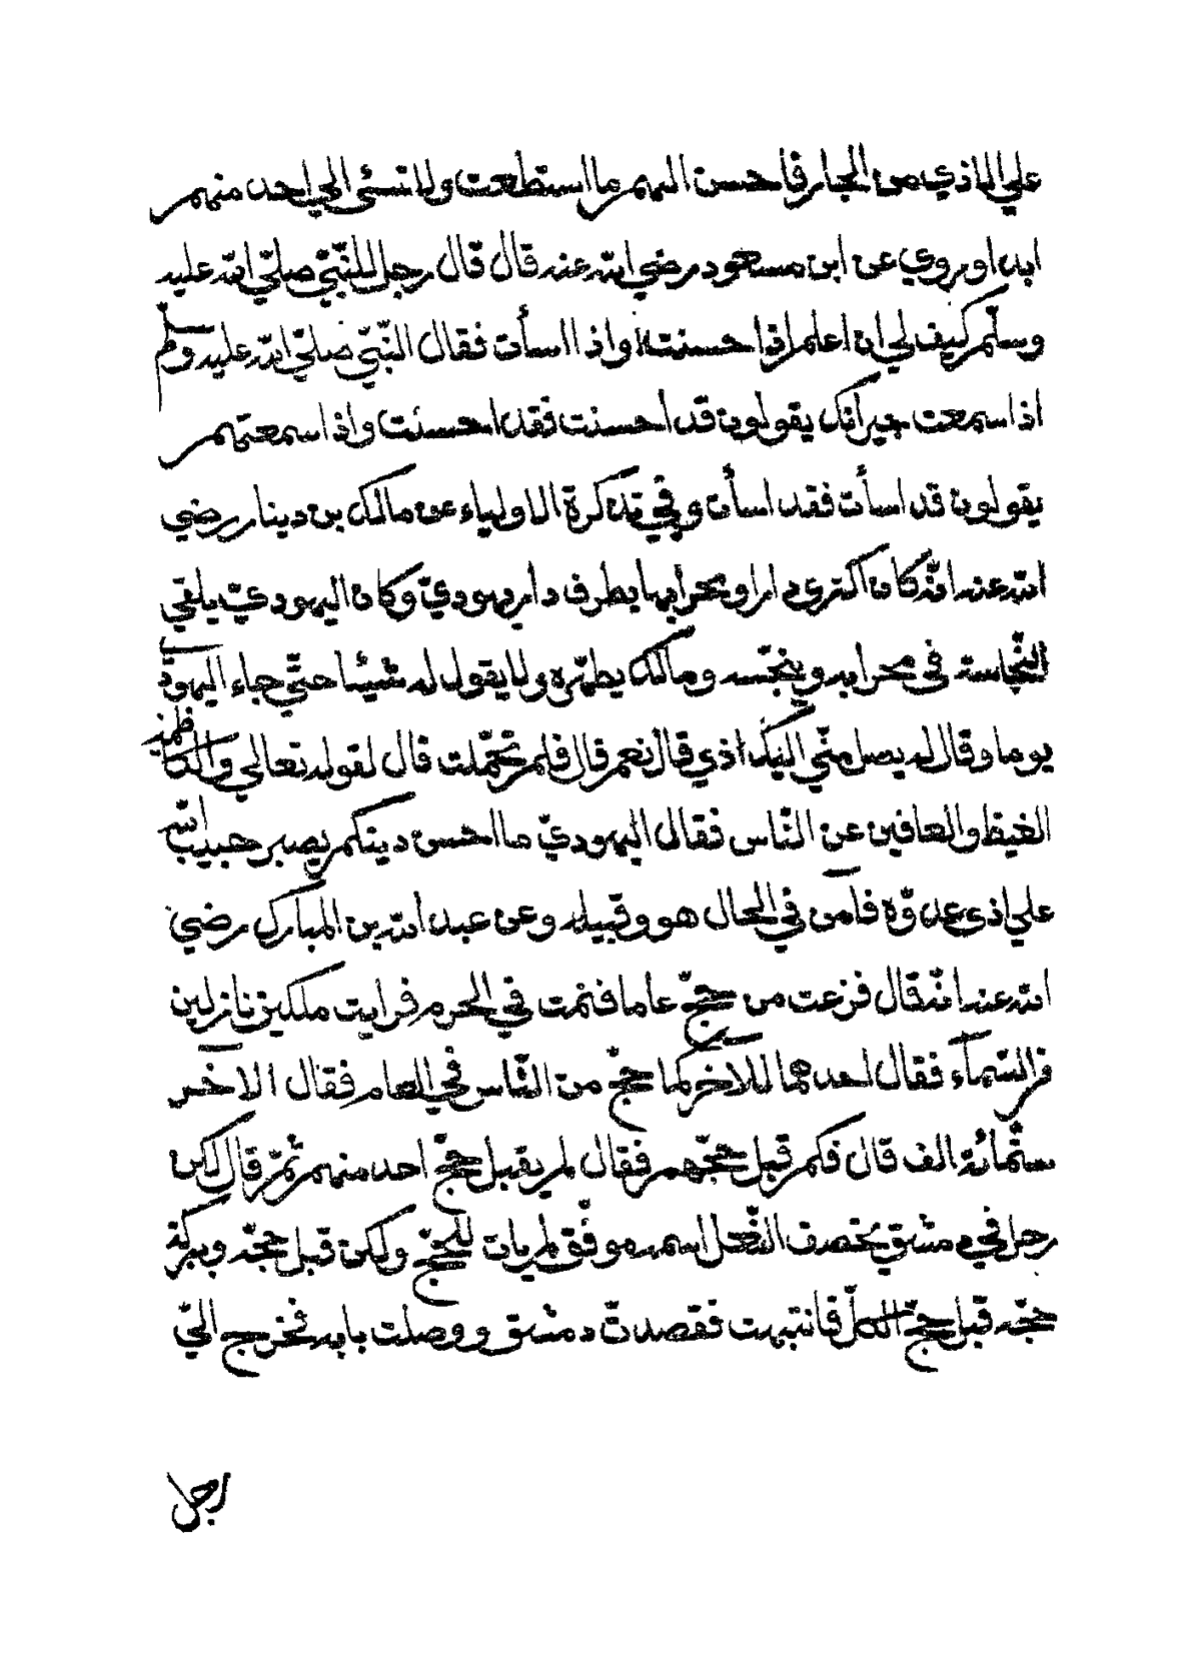 علي الاذي من الجار فاحسن اليهم ما استطعت ولا تسئى الي احد منهم
ابدا وروي عن ابن مسعود رضي الله عنه قال قال رجل للنّبيّ صلّي الله عليه
وسلّم كيف لي ان اعلم اذا احسنت اواذا اسأت فقال النّبيّ صلّي الله عليه وسلّم
اذا سمعت جيرانك يقولون قد أحسنت فقد احسنت واذا سمعتهم
يقولون قد اسأت فقد اسأت وفي تذكرة الاولياء عن مالك بن دينار رضي
الله عنه انّه كان اكتري دارا ومحرابها بطرف دار يهوديّ وكان اليهوديّ يلقي
النّجاسة في محرابه وينجّسه ومالك يطهّره ولا يقول له شيئا حتّي جاء اليهوديّ
يوما وقال له يصل منّي اليك اذي قال نعم قال فلم تحمّلت قال لقوله تعالي والكاظمين
الغيظ والعافين عن النّاس فقال اليهوديّ ما احسن دينكم يصبر حبيب الله
علي اذي عدوّه فآمن في الحال هو وقبيله وعن عبد الله بن المبارك رضي
الله عنه انّه قال فزعت من حجّ عاما فنمت في الحرم فرايت ملكين نازلين
من السّمآء فقال احدهما للآخر كما حجّ من النّاس في العام فقال الآخر
ستّمائة الف قال فكم قبل حجّهم فقال لم يقبل حجّ احد منهم ثمّ قال لكن
رجل في دمشق يخصف النّعل اسمه موفّق لم يات للحجّ ولكن قبل حجّه وببركة
حجّه قبل حجّ الكلّ فانتبهت فقصدت دمشق ووصلت بابه فخرج اليّ
رجل